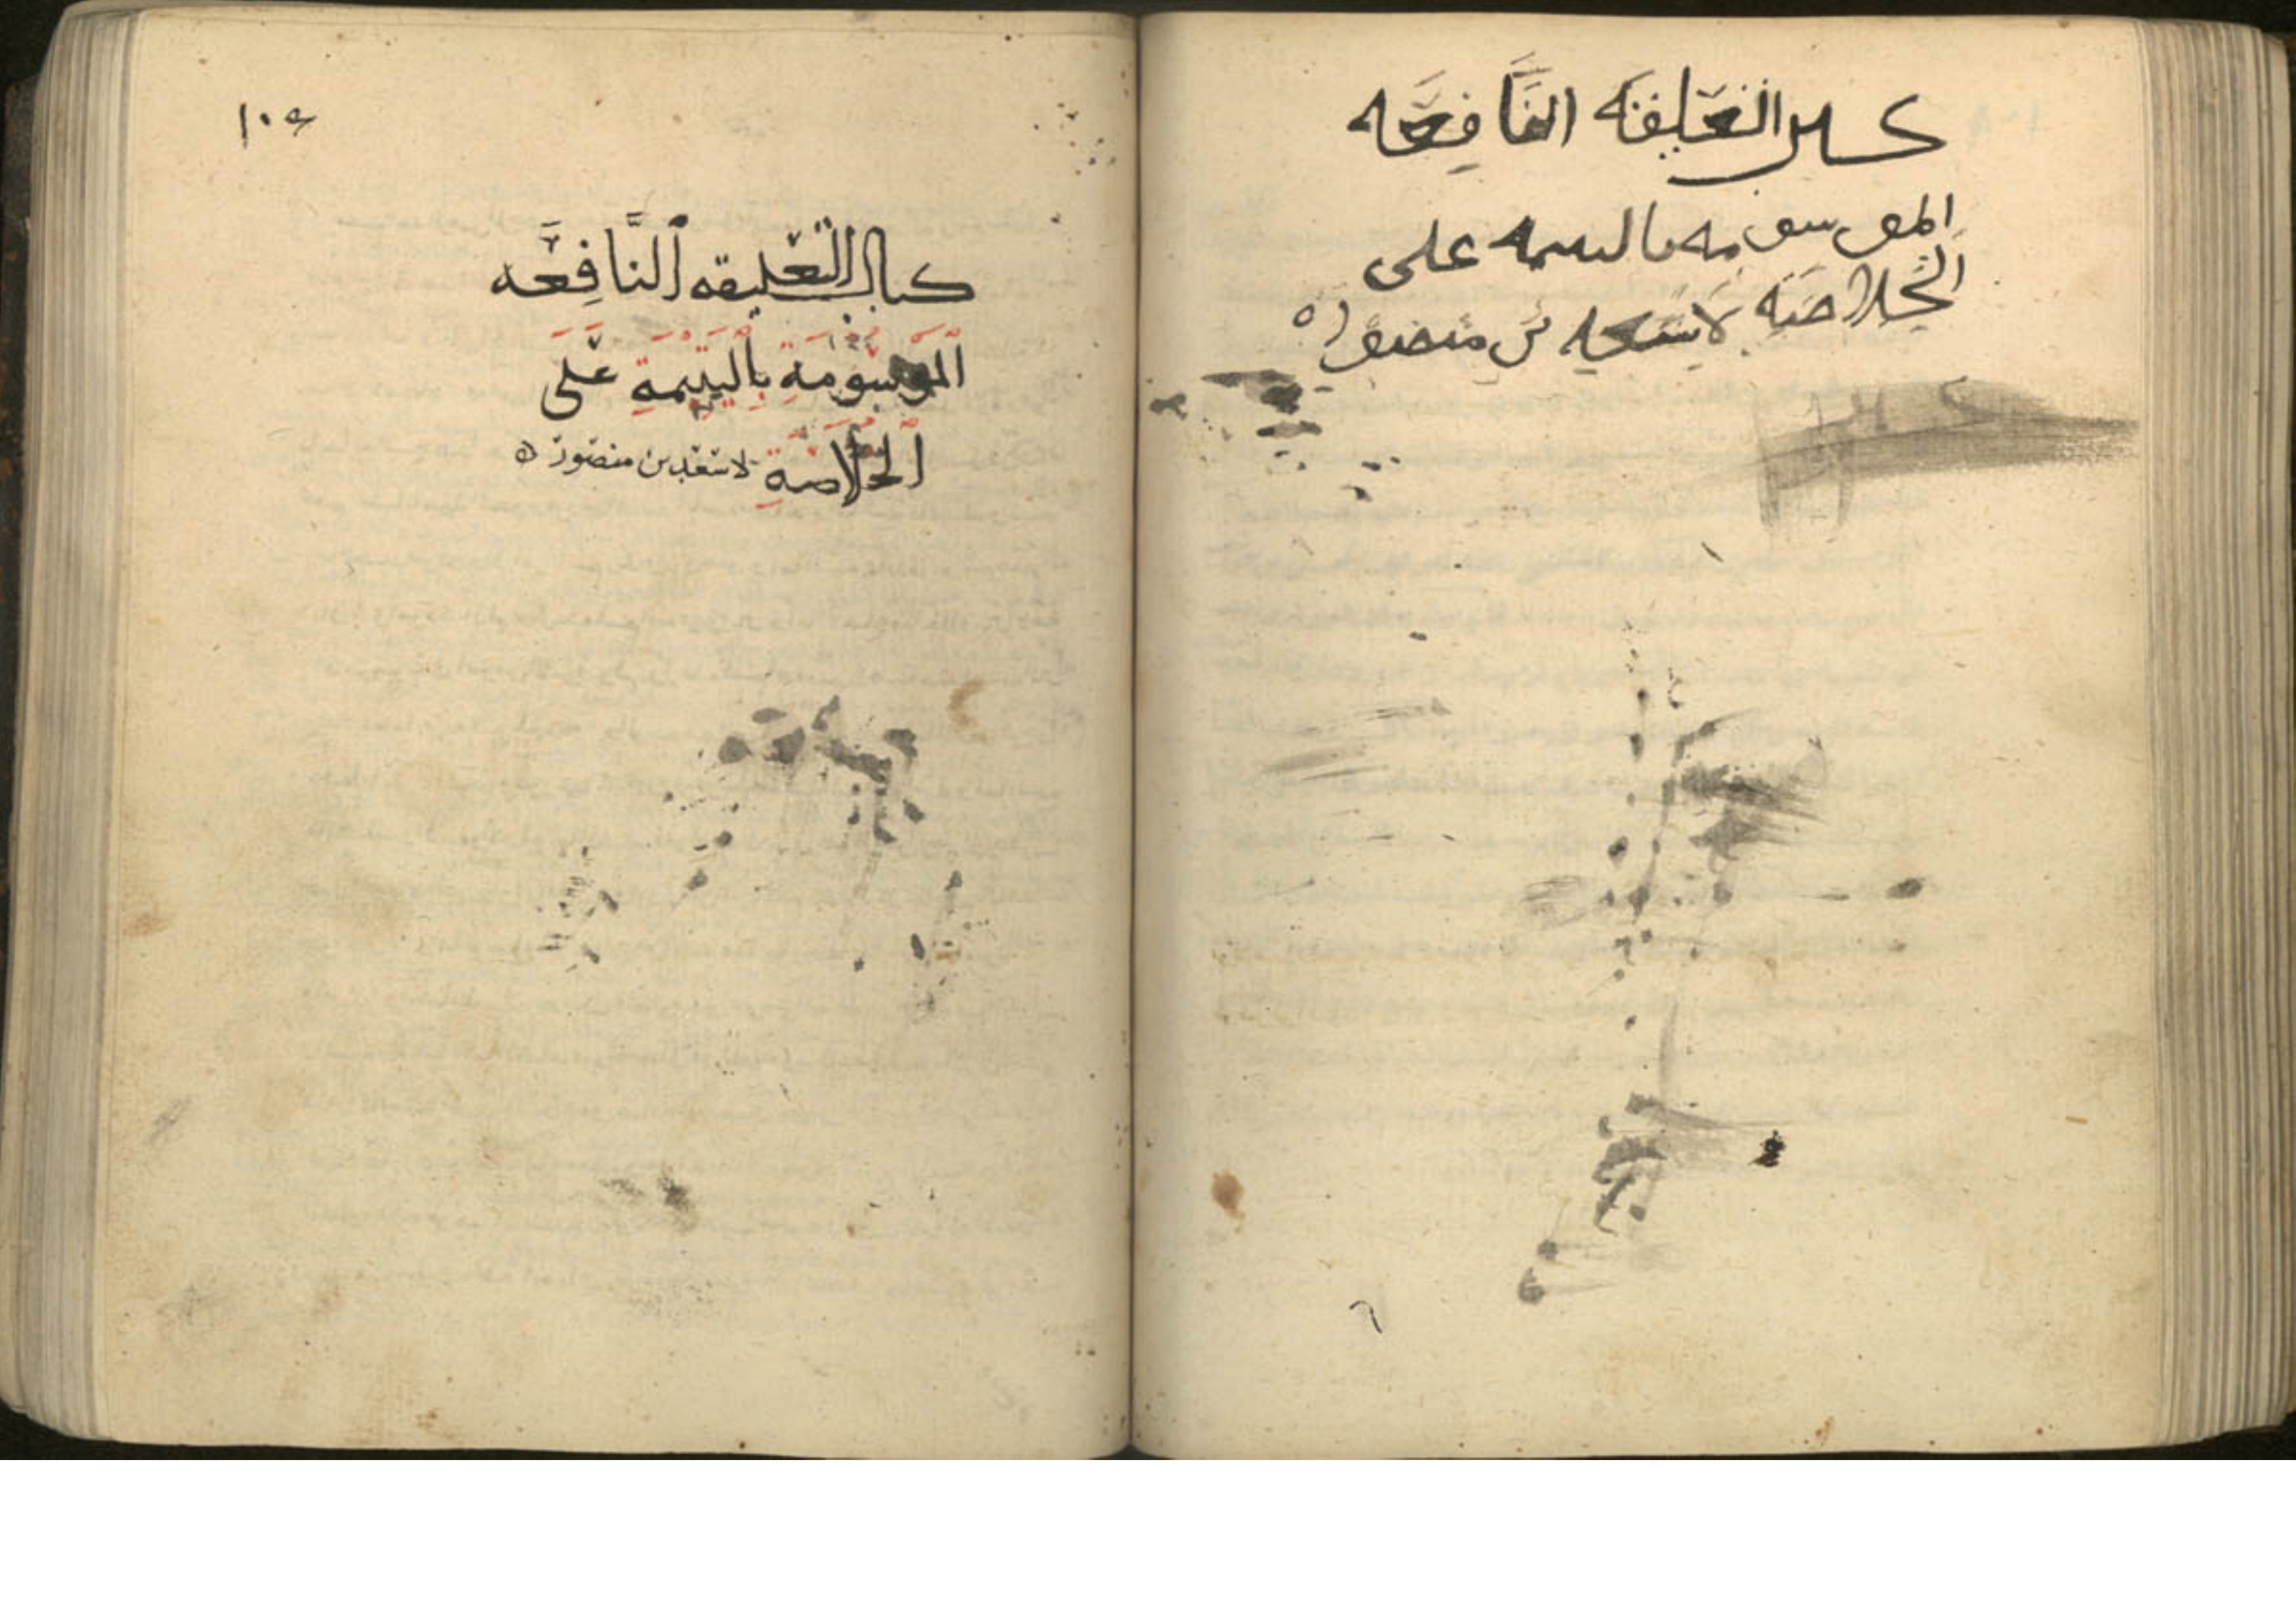 كتاب التعليقه النافعه
الموسومه باليتيمه على
الخلاصه لاسعد بن منصور ه
كتاب التَّعليقه اَلنَّافِعَه
اَلمَوسُومَةِ بِاَليَتِيمَةِ عَلَى
اَلخُلَاصَةِ لاسعد بن منصور ه